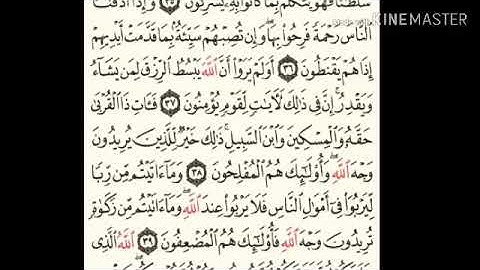 سُلْطَٰنًا فَهُوَ يَتَكَلَّمُ بِمَا كَانُوا۟ بِهِۦ يُشْرِكُونَ ٣٥ وَإِذَآ أَذَقْنَا
MADE WITH KINEMASTER
ٱلنَّاسَ رَحْمَةً فَرِحُوا۟ بِهَا ۖ وَإِن تُصِبْهُمْ سَيِّئَةٌۢ بِمَا قَدَّمَتْ أَيْدِيهِمْ
إِذَا هُمْ يَقْنَطُونَ ٣٦ أَوَلَمْ يَرَوْا۟ أَنَّ ٱللَّهَ يَبْسُطُ ٱلرِّزْقَ لِمَن يَشَآءُ
وَيَقْدِرُ ۚ إِنَّ فِى ذَٰلِكَ لَءَايَٰتٍ لِّقَوْمٍ يُؤْمِنُونَ ٣٧ فَـَٔاتِ ذَا ٱلْقُرْبَىٰ
حَقَّهُۥ وَٱلْمِسْكِينَ وَٱبْنَ ٱلسَّبِيلِ ۚ ذَٰلِكَ خَيْرٌ لِّلَّذِينَ يُرِيدُونَ
وَجْهَ ٱللَّهِ ۖ وَأُو۟لَٰٓئِكَ هُمُ ٱلْمُفْلِحُونَ ٣٨ وَمَآ ءَاتَيْتُم مِّن رِّبًا
لِّيَرْبُوَا۟ فِىٓ أَمْوَٰلِ ٱلنَّاسِ فَلَا يَرْبُوا۟ عِندَ ٱللَّهِ ۖ وَمَآ ءَاتَيْتُم مِّن زَكَوٰةٍ
تُرِيدُونَ وَجْهَ ٱللَّهِ فَأُو۟لَٰٓئِكَ هُمُ ٱلْمُضْعِفُونَ ٣٩ ٱللَّهُ ٱلَّذِى